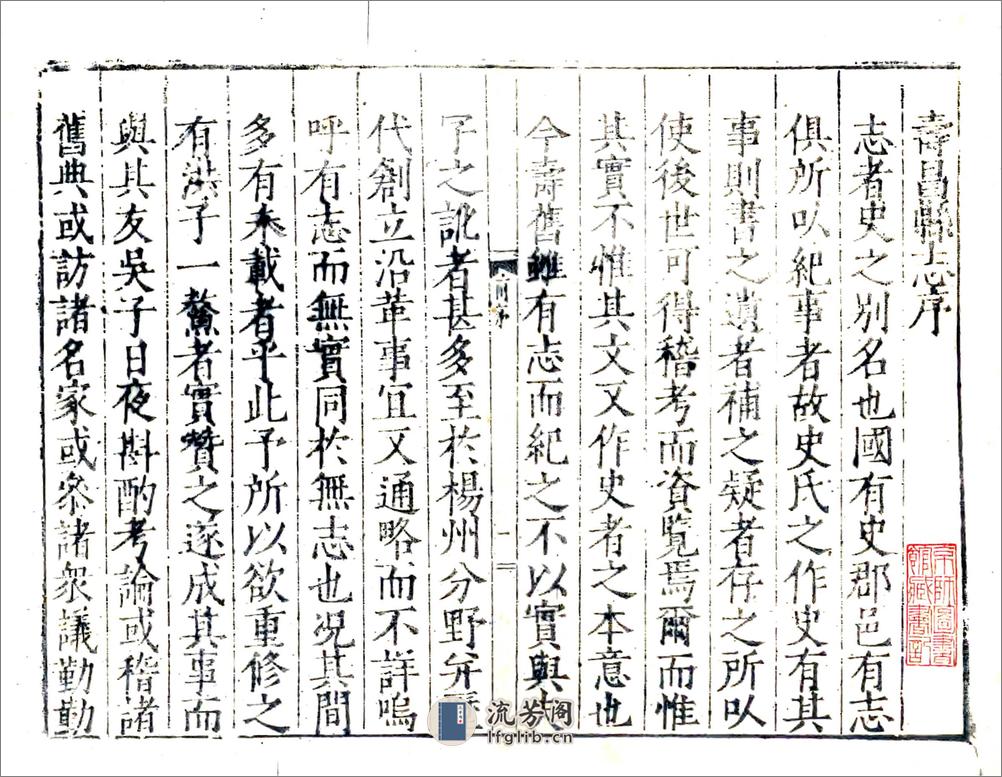 壽昌縣志序
志者史之别名也國有史郡邑有志
俱所㕥紀事者故史氏之作史有其
事則書之遺者補之疑者存之所㕥
使後世可得稽考而資覧焉爾而惟
其實不惟其文又作史者之本意也
今壽舊雖有志而紀之不以實與夫
字之訛者甚多至於楊州分野并歷
代創立沿革事宜又通略而不詳嗚
呼有志而無實同於無志也况其間
多有未載者乎此予所以欲重修之
有洪子一鰲者實贊之遂成其事而
與其友吳子日夜斟酌考論或稽諸
舊典或訪諸名家或叅諸衆議勤勤
京師圖書
館藏書記
流芳阁
lfglib.cn